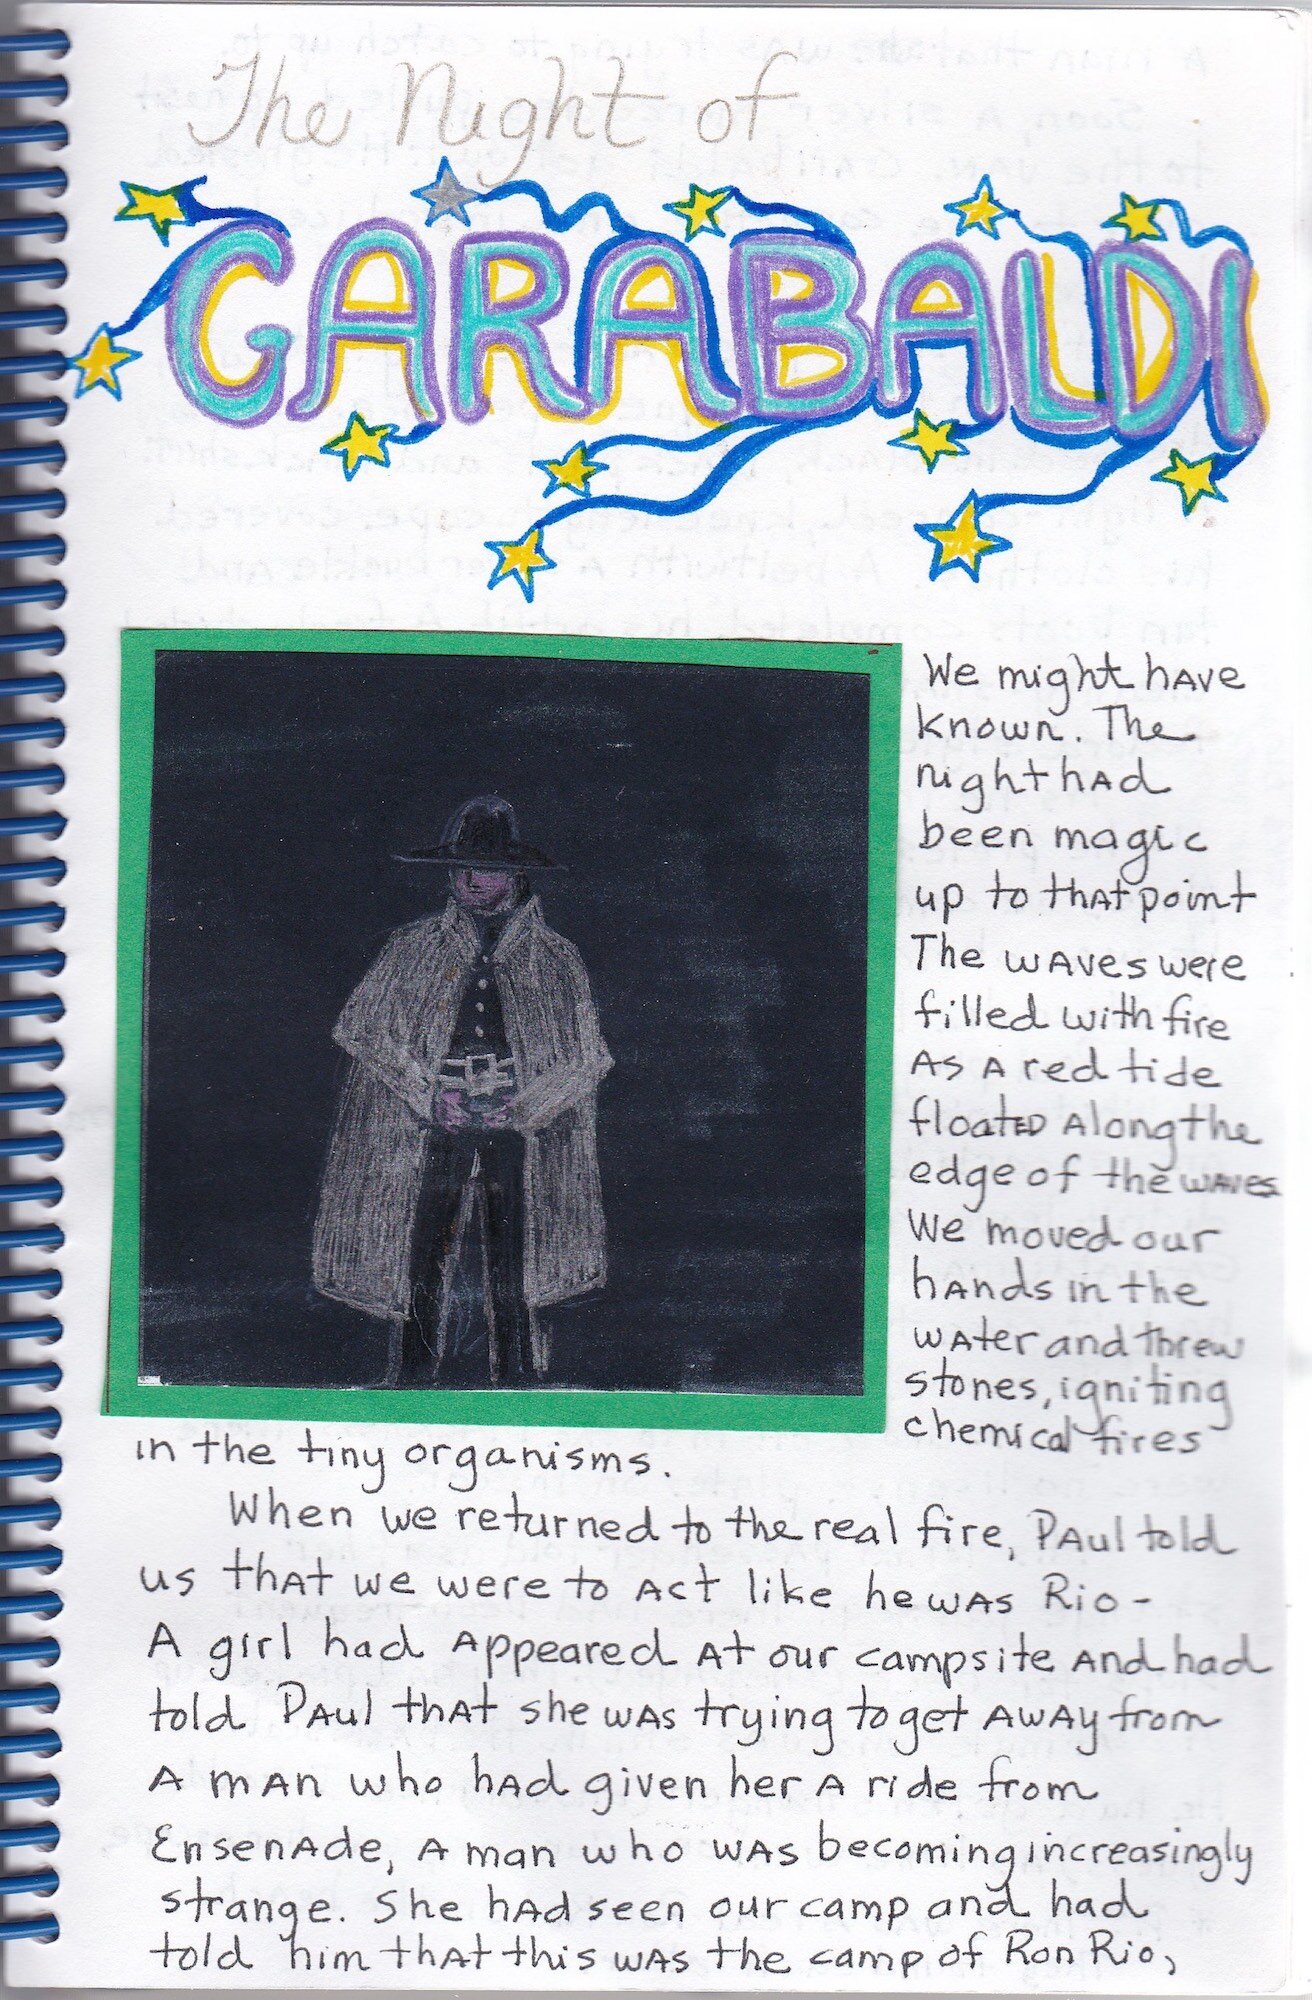 The Night of
GARABALDI
We might have
known. The
night had
been magic
up to that point
The waves were
filled with fire
As A red tide
floated Along the
edge of the waves
We moved our
hands in the
water and threw
stones, igniting
chemical fires
in the tiny organisms.
When we returned to the real fire, Paul told
us that we were to act like he was Rio -
A girl had appeared at our campsite and had
told Paul that she was trying to get away from
A man who had given her a ride from
Ensenade, a man who was becoming increasingly
strange. She had seen our camp and had
told him that this was the camp of Ron Rio,